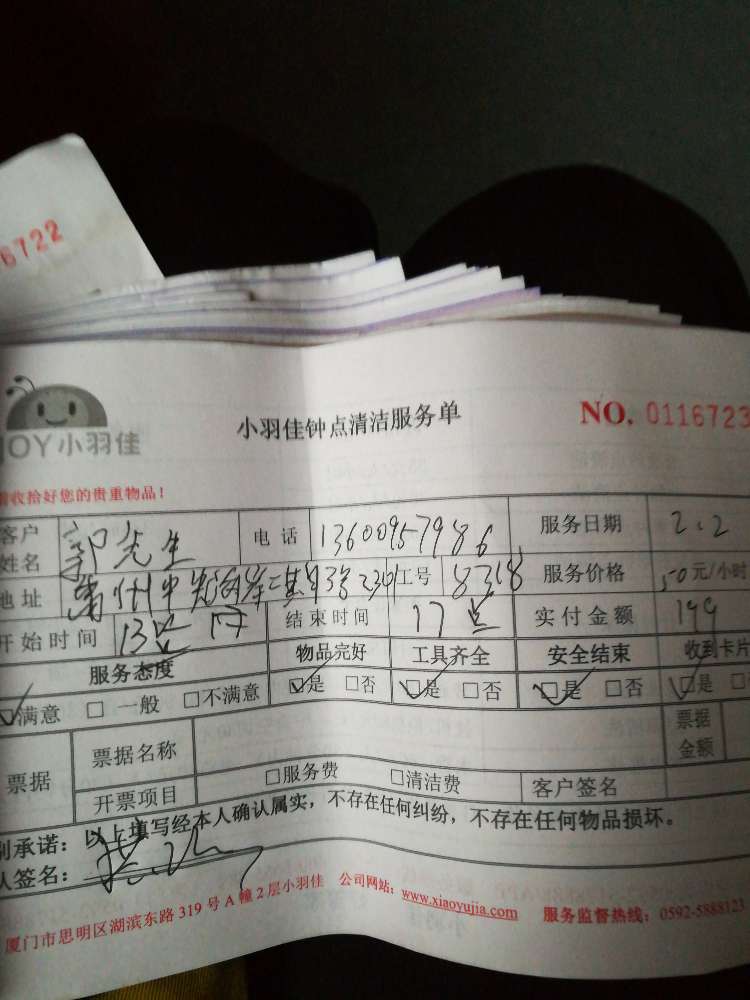 6722
JOY小羽佳
小羽佳钟点清洁服务单
NO. 0116723
请收拾好您的贵重物品！
客户姓名 郭先生 电话 13600957986 服务日期 2.2
地址 工号 8318 服务价格 50元/小时
开始时间 13点 结束时间 17点 实付金额 199
服务态度 物品完好 工具齐全 安全结束 收到卡片
☑满意 □ 一般 □不满意 ☑是 □否 ☑是 □否 ☑是 □否 ☑是 □
票据 票据名称 票据金额
开票项目 □服务费 □清洁费 客户签名
别承诺：以上填写经本人确认属实，不存在任何纠纷，不存在任何物品损坏。
人签名：
厦门市思明区湖滨东路319号A幢2层小羽佳 公司网站：www.xiaoyujia.com 服务监督热线：0592-5888123